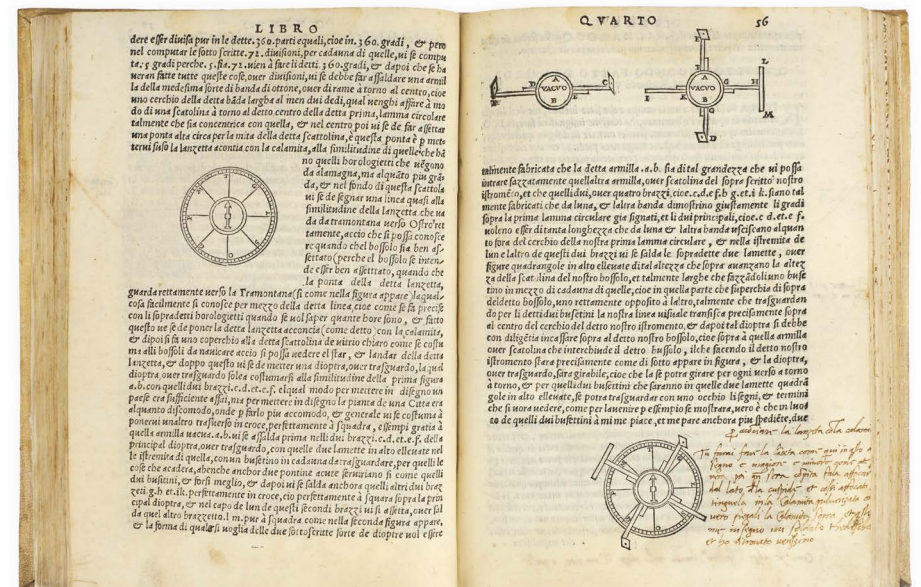 LIBRO
dere esser diuisa pur in le dette. 360. parti equali, cioe in. 360. gradi, & pero
nel computar le sotto scritte. 72. diuisioni, per cadauna di quelle, ui se compu
ta. 5 gradi perche. 5. fia. 72. uien à fare li detti. 360. gradi, & dapoi che se ha
ueran fatte tutte queste cose, ouer diuisioni, ui se debbe far assaldare una armil
la della medesima sorte di banda di ottone, ouer di rame à torno al centro, cioe
uno cerchio della detta bãda largha al men dui dedi, qual uenghi assare à mo
do di una scatolina à torno al detto centro della detta prima, lamma circulare
talmente che sia concentrica con quella, & nel centro poi ui se de far assettar
una ponta alta circa per la mita della detta scattolina, è questa ponta è p met
terui suso la lanzetta acontia con la calamita, alla similitudine di quelle che hã
no quelli horologietti che uẽgono
da alamagna, ma alquãto piu grã
da, & nel fondo di questa scattola
ui se de segnar una linea quasi alla
similitudine della lanzetta che ua
da da tramontana uerso Ostro ret
tamente, accio che si possa conosce
re quando chel bossolo sia ben as-
settato (perche el bossolo se inten-
de esser ben assettato, quando che
la ponta della detta lanzetta,
guarda rettamente uerso la Tramontana (si come nella figura appare) laqual
cosa facilmente si conosce per mezzo della detta linea, cioe come se fa precise
con li sopradetti horologietti quando se uol saper quante hore sono, & fatto
questo ue se de poner la detta lanzetta acconcia (come detto) con la calamita,
& dipoi si fa uno coperchio alla detta scattolina de uitrio chiaro come se costu
ma alli bossoli da nauicare accio si possa uedere el star, & landar della detta
lanzetta, & doppo questo ui se de metter una dioptra, ouer trasguardo, la qual
dioptra, ouer trasguardo solea costumarsi alla similitudine della prima figura
a.b. con quelli dui brazzi.c.d.et.e.f. elqual modo per mettere in disegno un
paese era sufficiente assai, ma per mettere in disegno la pianta de una Citta era
alquanto discomodo, onde p farlo piu accomodo, & generale ui se costuma à
ponerui unaltro trasuerso in croce, perfettamente à squadra, essempi gratia è
quella armilla uacua.a.b. ui se assalda prima nelli dui brazzi.c.d.et.e.f. della
principal dioptra, ouer trasguardo, con quelle due lamette in alto elleuate nel
le istremita di quella, con un busetino in cadauna da trasguardare, per quelli le
cose che acadera, abenche anchor due pontine acute seruiriano si come quelli
dui busitini, & forsi meglio, & dapoi ui se salda anchora quelli altri dui braz
zeti.g.h et.ik. perfettamente in croce, cio perfettamente à squara sopra la prin
cipal dioptra, & nel capo de lun de questi secondi brazzi ui si assetta, ouer sal
da quel altro brazzetto.l.m. pur à squadra. come nella seconda figura appare,
& la forma di qual si uoglia delle due sottoscritte sorte de dioptre uol essere
QVARTO 56
A
VACVO
B
A
VACVO
B
L
M
almente fabricata che la detta armilla.a.b. sia di tal grandezza che ui possa
intrare sazzatamente quellaltra armilla, ouer scatolina del sopra scritto nostro
istromẽto, et che quelli dui, ouer quatro brazzi, cioe.c.d.e f.h g.et.i k. siano tal
mente fabricati che da luna, & laltra banda dimostrino giustamente li gradi
sopra la prima lamma circulare gia signati, et li dui principali, cioe.c d.et.e f.
uoleno esser di tanta longhezza che da luna & laltra banda usciscano alquan
to fora del cerchio della nostra prima lamma circulare, & nella istremita de
lun e laltro de questi dui brazzi ui se salda le sopradette due lamette, ouer
figure quadrangole in alto elleuate di tal altezza che sopra auanzano la altez
za della scatolina del nostro bossolo, et talmente larghe che fazzãdoli uno buse
tino in mezzo di cadauna di quelle, cioe in quella parte che superchia di sopra
del detto bossolo, uno rettamente opposito à laltro, talmente che trasguardan
do per li detti dui busetini la nostra linea uisuale transisca precisamente sopra
al centro del cerchio del detto nostro istromento, & dapoi tal dioptra si debbe
con diligẽtia incassare sopra al detto nostro bossolo, cioe sopra à quella armilla
ouer scattolina che interchiude il detto bussolo, il che facendo il detto nostro
istromento stara precisamente come di sotto appare in figura, & la dioptra,
ouer trasguardo, sara girabile, cioe che la se potra girare per ogni uerso à torno
à torno, & per quelli dui busettini che saranno in quelle due lamette quadrã
gole in alto elleuate, se potra trasguardar con uno occhio li segni, & termini
che si uora uedere, come per lauenire p essempio se mostrara, uero è che in luo
co de quelli dui busettini à mi me piace, et me pare anchora piu spediẽte, due